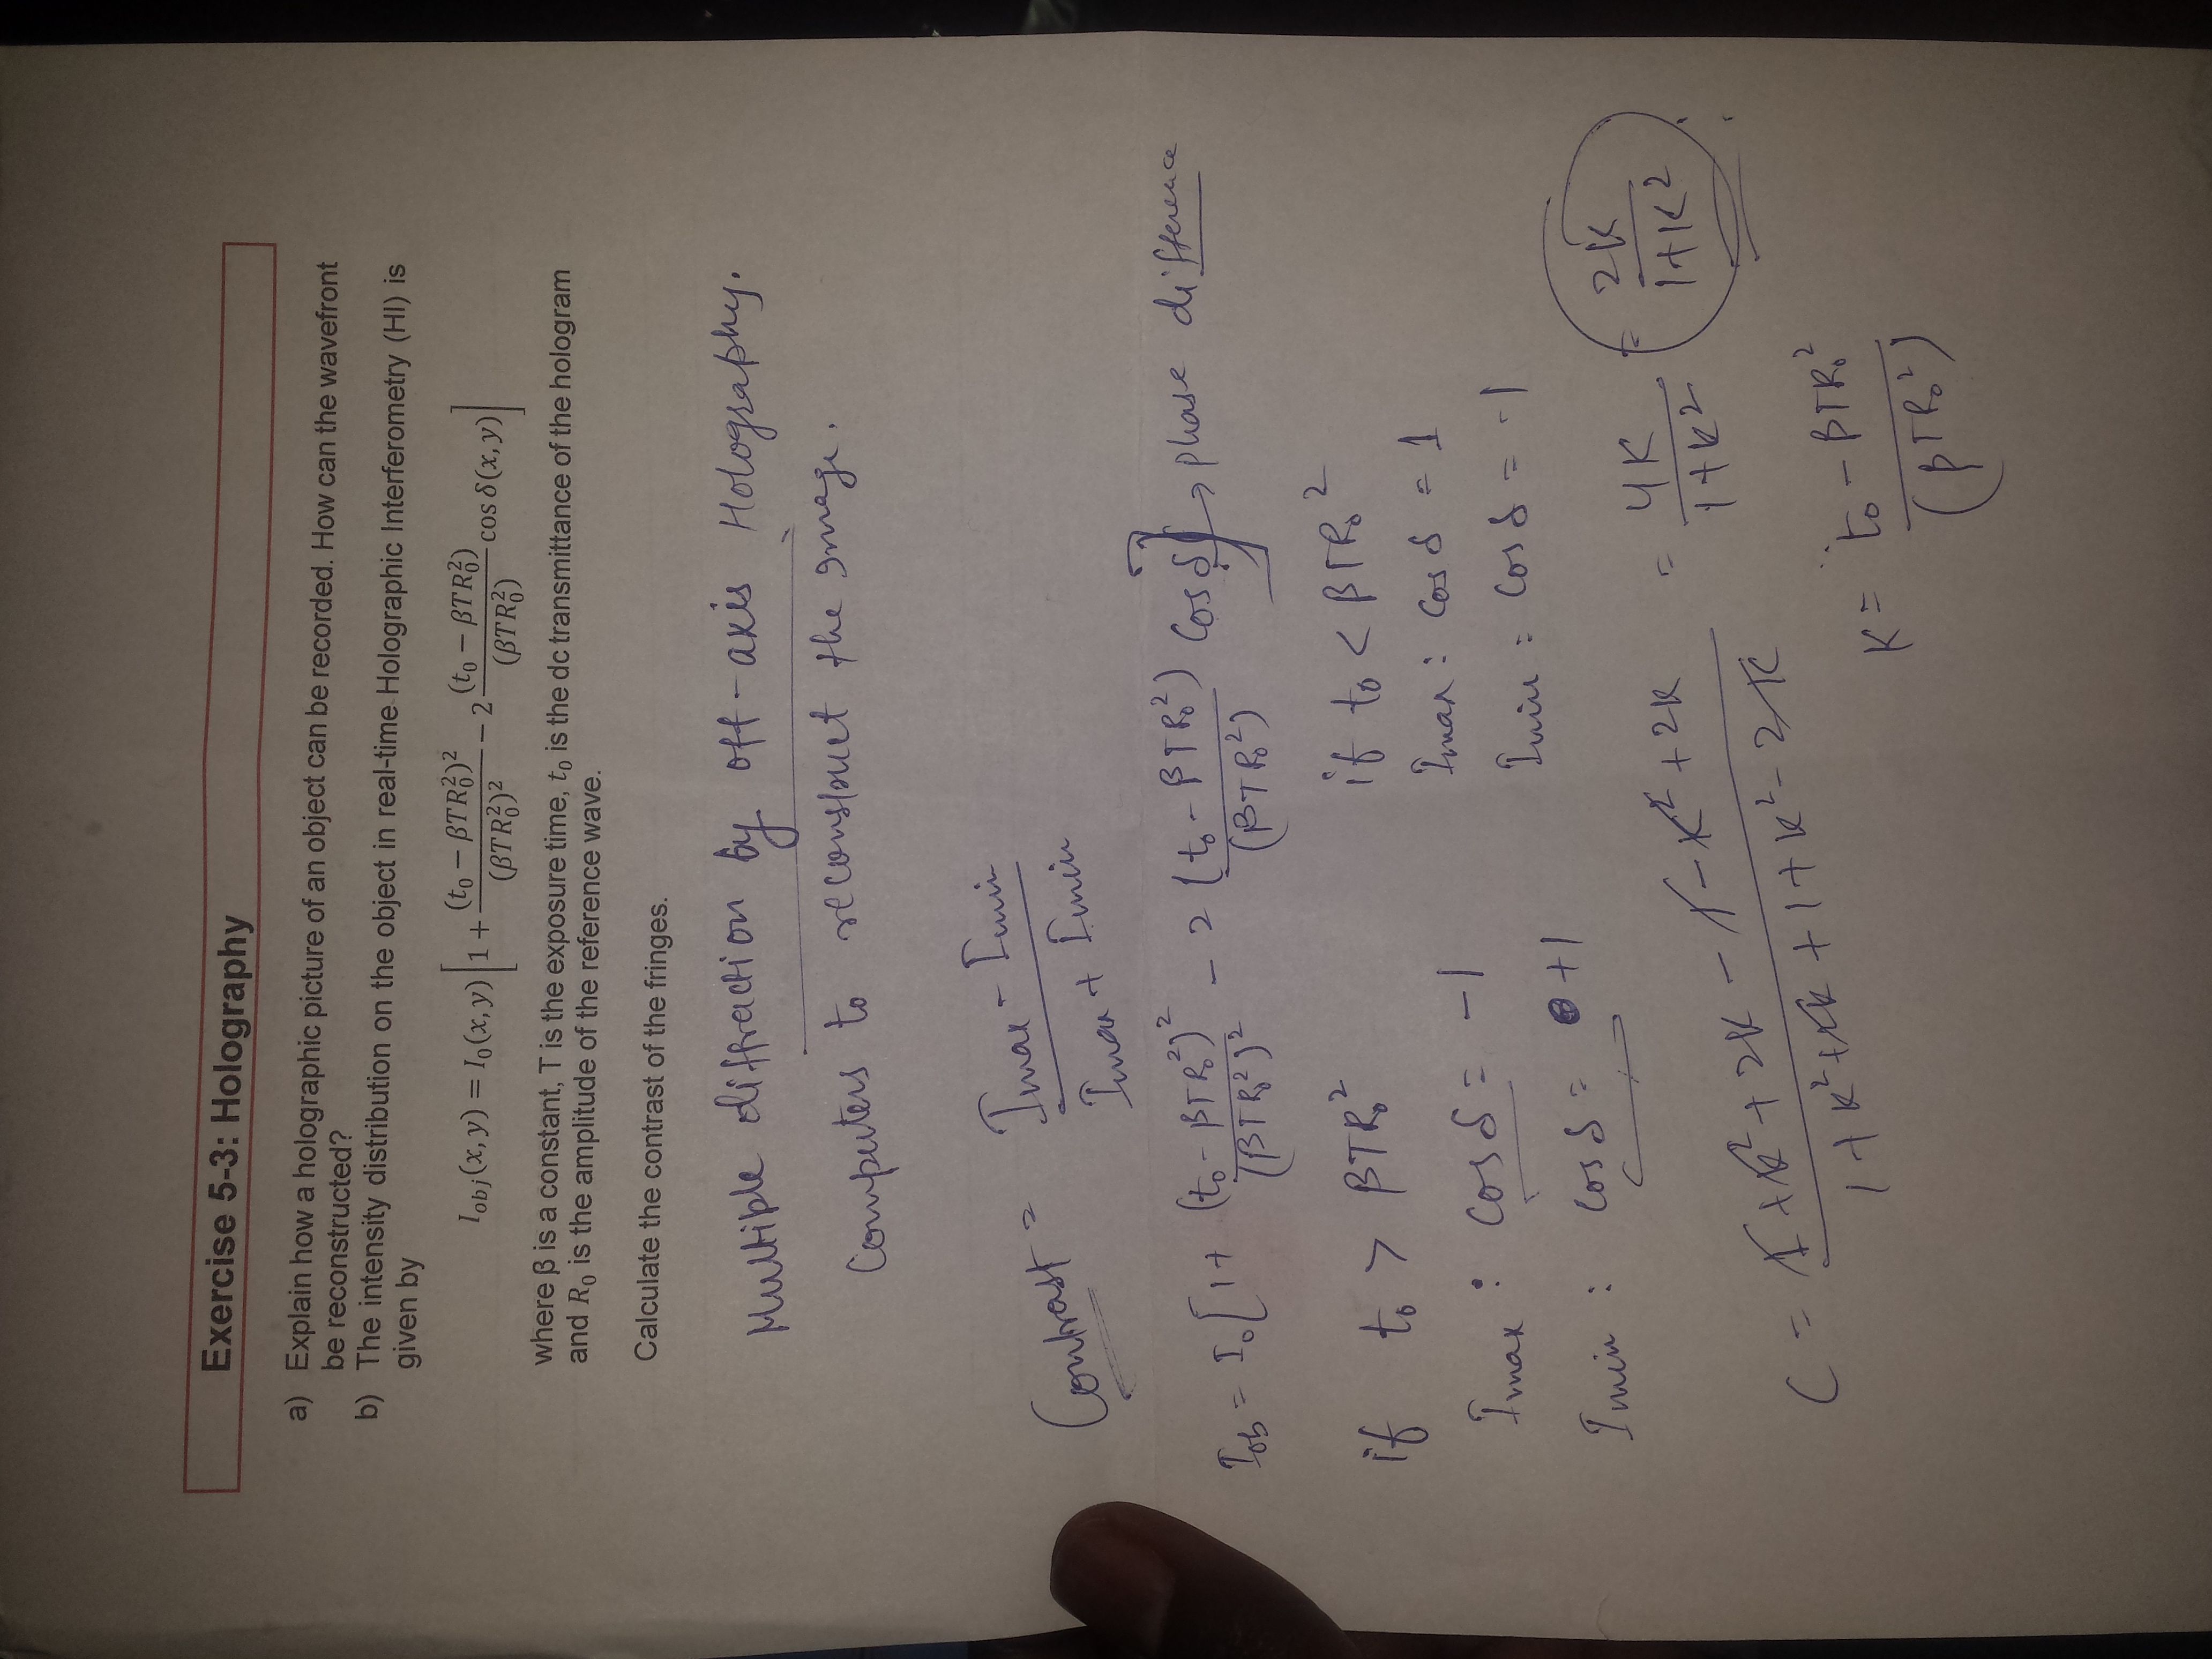 Exercise 5-3: Holography
a) Explain how a holographic picture of an object can be recorded. How can the wavefront
be reconstructed?
b) The intensity distribution on the object in real-time Holographic Interferometry (HI) is
given by
I_obj(x, y) = I₀(x, y) [1 + (t₀ − βTR₀²)² / (βTR₀²)² − 2 (t₀ − βTR₀²) / (βTR₀²) cos δ(x, y)]
where β is a constant, T is the exposure time, t₀ is the dc transmittance of the hologram
and R₀ is the amplitude of the reference wave.
Calculate the contrast of the fringes.
Multiple diffraction by off-axis Holography.
Computers to reconstruct the image.
Contrast = (Imax - Imin) / (Imax + Imin)
Iob = I₀ [1 + (t₀ - βTR₀²)² / (βTR₀²)² - 2 (t₀ - βTR₀²) / (βTR₀²) Cos δ] → phase difference
if t₀ > βTR₀²
Imax : cos δ = -1
Imin : cos δ = +1
if t₀ < βTR₀²
Imax : Cos δ = 1
Imin : Cos δ = -1
C = (1 + K² + 2K - 1 - K² + 2K) / (1 + K² + 2K + 1 + K² - 2K) = 4K / (1 + K²) = 2K / (1 + K²)
K = (t₀ - βTR₀²) / (βTR₀²)